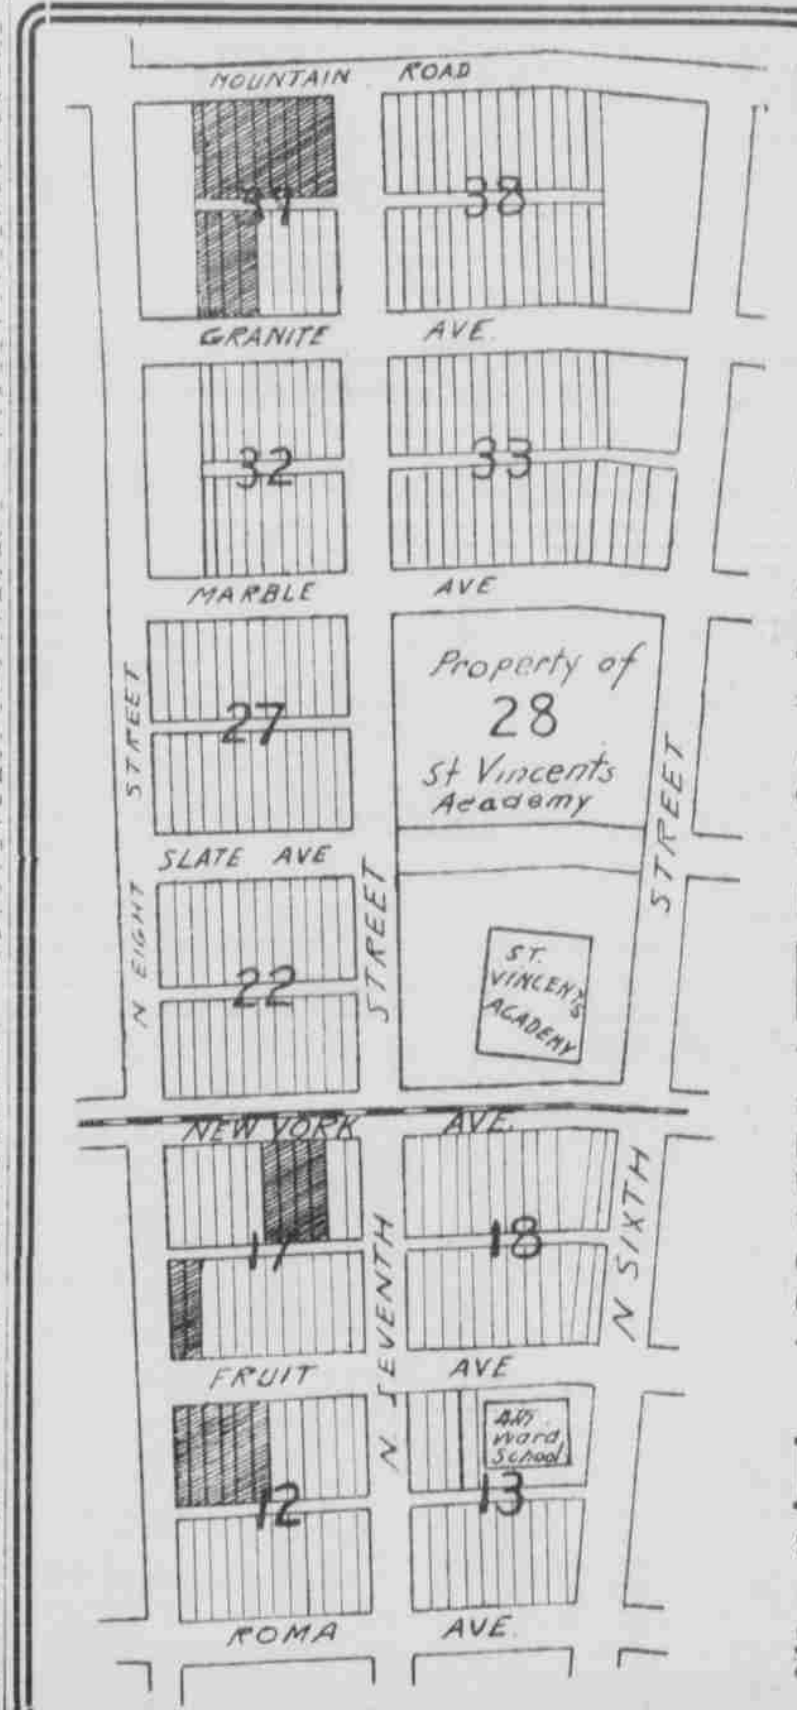 MOUNTAIN ROAD
39 38
GRANITE AVE.
32 33
MARBLE AVE
27
Property of
28
St Vincents
Academy
STREET
STREET
SLATE AVE
N EIGHT
STREET
22
ST.
VINCENTS
ACADEMY
NEW YORK AVE.
17 18
N SEVENTH
N SIXTH
FRUIT AVE
4th
Ward
School
12 13
ROMA AVE.